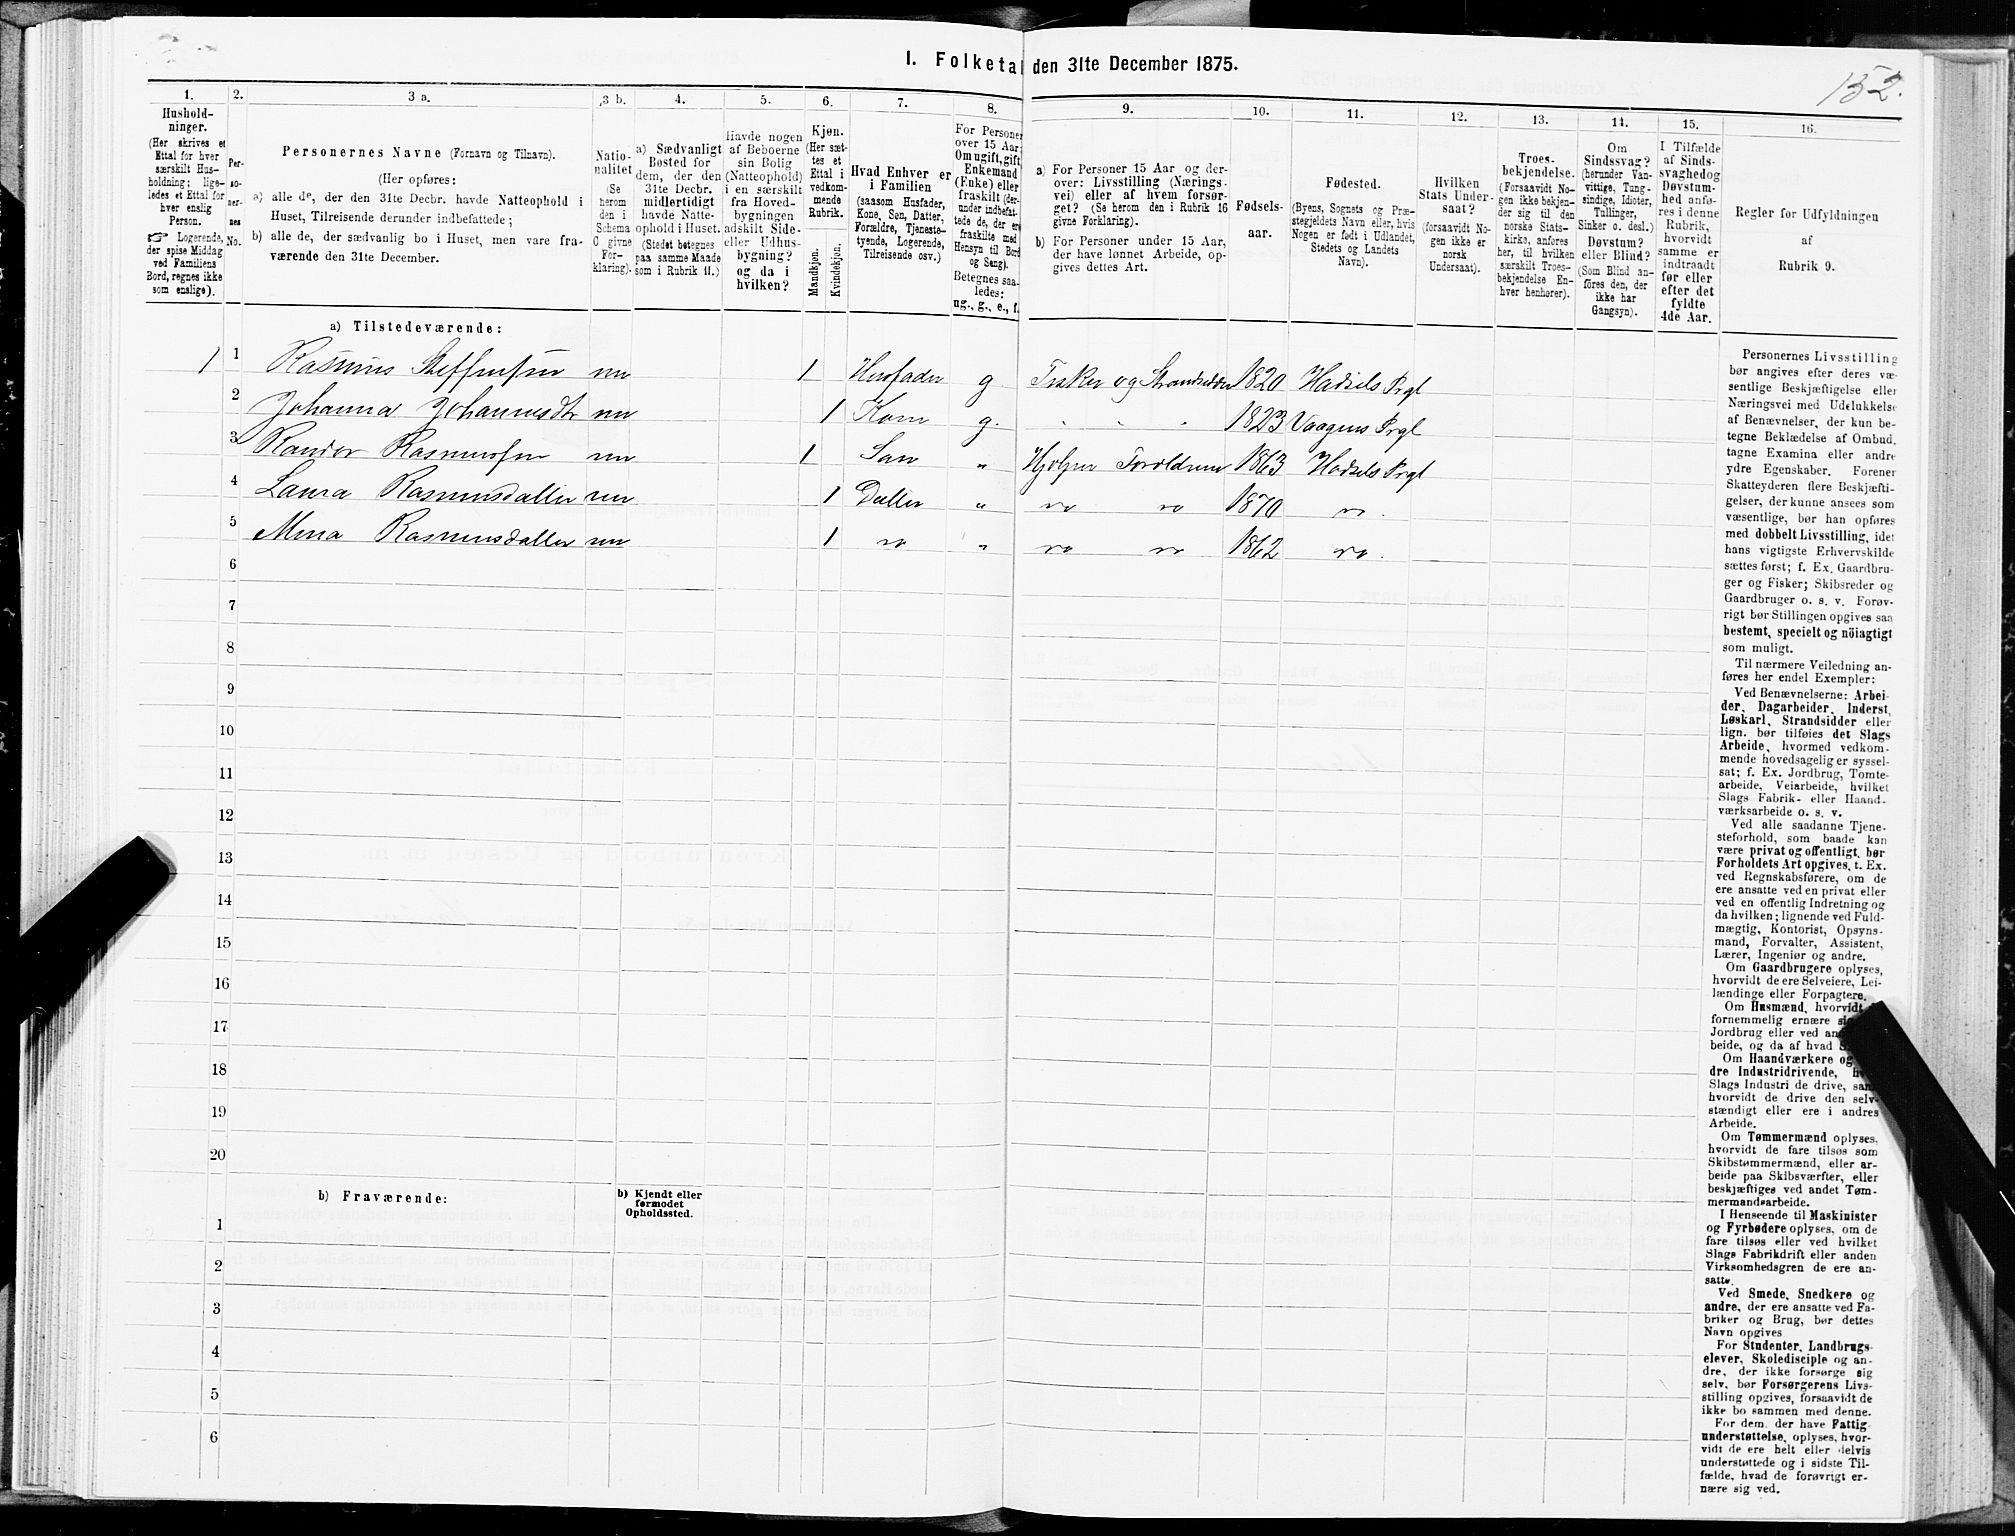 I. Folketal den 31te December 1875.
152.
1.
Hushold-
ninger.
(Her skrives et
Ettal for hver
særskilt Hus-
holdning; lige-
ledes et Ettal for
hver enslig
Person.
☞ Logerende,
der spise Middag
ved Familiens
Bord, regnes ikke
som enslige).
2.
Per-
so-
ner-
nes
No.
3 a.
Personernes Navne (Fornavn og Tilnavn).
(Her opføres:
a) alle de, der den 31te Decbr. havde Natteophold i
Huset, Tilreisende derunder indbefattede;
b) alle de, der sædvanlig bo i Huset, men vare fra-
værende den 31te December.
3 b.
Natio-
nalitet
(Se
herom
den i
Schema
C givne
For-
klaring).
4.
a) Sædvanligt
Bosted for
dem, der den
31te Decbr.
midlertidigt
havde Natte-
ophold i Huset.
(Stedet betegnes
paa samme Maade
som i Rubrik 11.)
5.
Havde nogen
af Beboerne
sin Bolig
(Natteophold)
i en særskilt
fra Hoved-
bygningen
adskilt Side-
eller Udhus-
bygning?
og da i
hvilken?
6.
Kjøn.
(Her sæt-
tes et
Ettal i
vedkom-
mende
Rubrik.
Mandkjøn.
Kvindekjøn.
7.
Hvad Enhver er
i Familien
(saasom Husfader,
Kone, Søn, Datter,
Forældre, Tjeneste-
tyende, Logerende,
Tilreisende osv.)
8.
For Personer
over 15 Aar:
Om ugift, gift,
Enkemand
(Enke) eller
fraskilt (der-
under indbefat-
tede de, der ere
fraskilte med
Hensyn til Bord
og Seng).
Betegnes saa-
ledes:
ug., g., e., f.
9.
a) For Personer 15 Aar og der-
over: Livsstilling (Nærings-
vei) eller af hvem forsør-
get? (Se herom den i Rubrik 16
givne Forklaring).
b) For Personer under 15 Aar,
der have lønnet Arbeide, op-
gives dettes Art.
10.
Fødsels-
aar.
11.
Fødested.
(Byens, Sognets og Præ-
stegjeldets Navn eller, hvis
Nogen er født i Udlandet,
Stedets og Landets
Navn).
12.
Hvilken
Stats Under-
saat?
(forsaavidt No-
gen ikke er
norsk
Undersaat).
13.
Troes-
bekjendelse.
(Forsaavidt No-
gen ikke bekjen-
der sig til den
norske Stats-
kirke, anføres
her, til hvilken
særskilt Troes-
bekjendelse En-
hver henhører).
14.
Om
Sindssvag?
(herunder Van-
vittige, Tung-
sindige, Idioter,
Tullinger,
Sinker o. desl.)
Døvstum?
eller Blind?
(Som Blind an-
føres den, der
ikke har
Gangsyn).
15.
I Tilfælde
af Sinds-
svaghed og
Døvstum-
hed anfø-
res i denne
Rubrik,
hvorvidt
samme er
indtraadt
før eller
efter det
fyldte
4de Aar.
16.
Regler for Udfyldningen
af
Rubrik 9.
a) Tilstedeværende:
1 1 Rasmus Steffensen nn 1 Husfader g Fisker og Strandsidder 1820 Hadsels Prgl
2 Johanna Johannesdtr nn 1 Kone g. " " " 1823 Vaagens Prgl
3 Randor Rasmussen nn 1 Søn " Hjelper Foreldrene 1863 Hadsels Prgl
4 Laura Rasmusdatter nn 1 Datter " do do 1870 do.
5 Mina Rasmusdatter nn 1 do " do do 1862 do.
6
7
8
9
10
11
12
13
14
15
16
17
18
19
20
b) Fraværende:
b) Kjendt eller
formodet
Opholdssted.
1
2
3
4
5
6
Personernes Livsstilling
bør angives efter deres væ-
sentlige Beskjæftigelse eller
Næringsvei med Udelukkelse
af Benævnelser, der kun be-
tegne Beklædelse af Ombud,
tagne Examina eller andre
ydre Egenskaber. Forener
Skatteyderen flere Beskjæfti-
gelser, der kunne ansees som
væsentlige, bør han opføres
med dobbelt Livsstilling, idet
hans vigtigste Erhvervskilde
sættes først; f. Ex. Gaardbru-
ger og Fisker; Skibsreder og
Gaardbruger o. s. v. Forøv-
rigt bør Stillingen opgives saa
bestemt, specielt og nöiagtigt
som muligt.
Til nærmere Veiledning an-
føres her endel Exempler:
Ved Benævnelserne: Arbei-
der, Dagarbeider, Inderst,
Løskarl, Strandsidder eller
lign. bør tilføies det Slags
Arbeide, hvormed vedkom-
mende hovedsagelig er syssel-
sat; f. Ex. Jordbrug, Tomte-
arbeide, Veiarbeide, hvilket
Slags Fabrik- eller Haand-
værksarbeide o. s. v.
Ved alle saadanne Tjene-
steforhold, som baade kan
være privat og offentligt, bør
Forholdets Art opgives, t. Ex.
ved Regnskabsførere, om de
ere ansatte ved en privat eller
ved en offentlig Indretning og
da hvilken; lignende ved Fuld-
mægtig, Kontorist, Opsyns-
mand, Forvalter, Assistent,
Lærer, Ingeniør og andre.
Om Gaardbrugere oplyses,
hvorvidt de ere Selveiere, Lei-
lændinge eller Forpagtere.
Om Husmænd, hvorvidt
fornemmelig ernære
Jordbrug eller ved
beide, og da af hvad
Om Haandværkere og
dre Industridrivende,
Slags Industri de drive, samt
hvorvidt de drive den selv-
stændigt eller ere i andres
Arbeide.
Om Tømmermænd oplyses,
hvorvidt de fare tilsøs som
Skibstømmermænd, eller ar-
beide paa Skibsværfter, eller
beskjæftiges ved andet Tøm-
mermandsarbeide.
I Henseende til Maskinister
og Fyrbødere oplyses, om de
fare tilsøs eller ved hvilket
Slags Fabrikdrift eller anden
Virksomhedsgren de ere an-
satte.
Ved Smede, Snedkere og
andre, der ere ansatte ved Fa-
briker og Brug, bør dettes
Navn opgives
For Studenter, Landbrugs-
elever, Skoledisciple og an-
dre, der ikke forsørge sig
selv, bør Forsørgerens Livs-
stilling opgives, forsaavidt de
ikke bo sammen med denne.
For dem, der have Fattig-
understøttelse, oplyses, hvor-
vidt de ere helt eller delvis
understøttede og i sidste Til-
fælde, hvad de forøvrigt er-
nære sig ved.